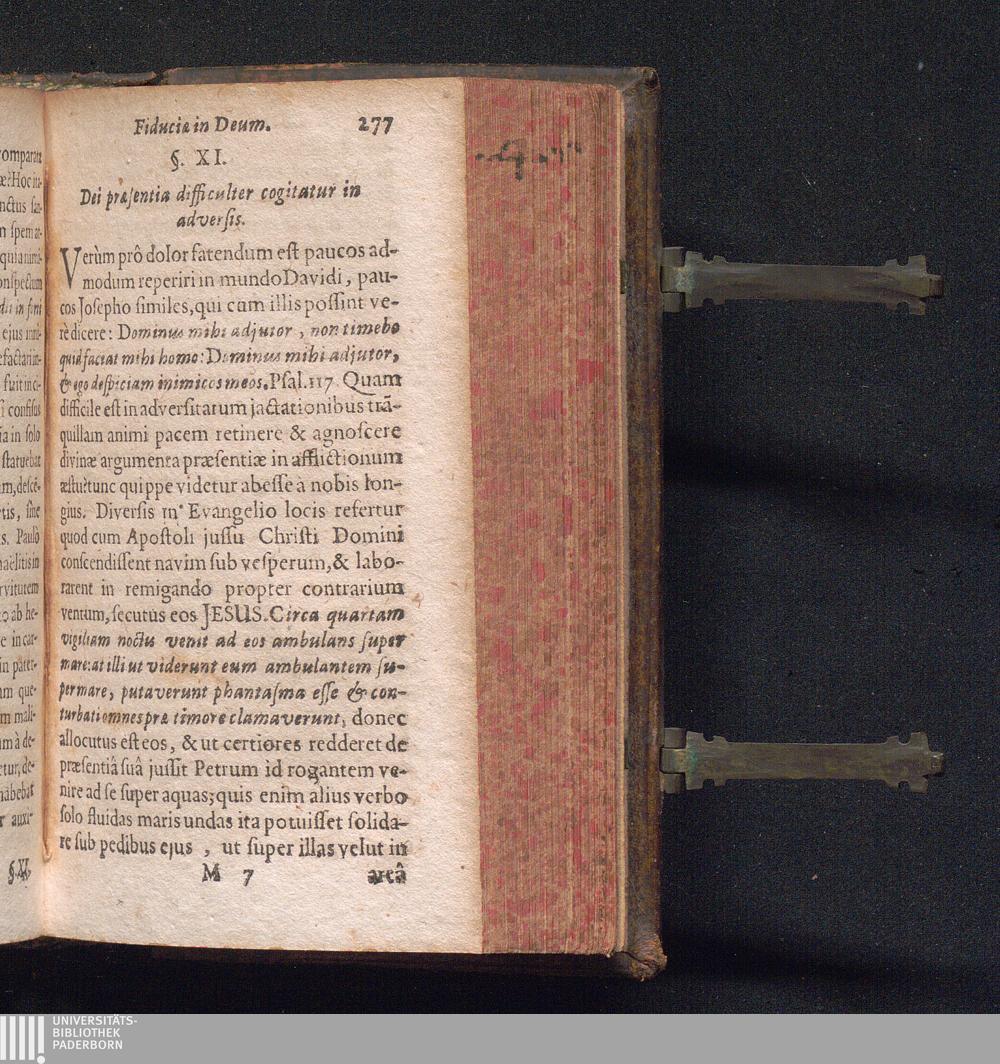 Fiduciæ in Deum. 277
§. XI.
Dei præsentia difficulter cogitatur in
adversis.
Verùm prô dolor fatendum est paucos ad-
modum reperiri in mundo Davidi, pau-
cos Josepho similes, qui cum illis possint ve-
rè dicere: Dominus mihi adjutor, non timebo
quid faciat mihi homo: Dominus mihi adjutor,
& ego despiciam inimicos meos. Psal. 117. Quam
difficile est in adversitatum jactationibus trã-
quillam animi pacem retinere & agnoscere
divinæ argumenta præsentiæ in afflictionum
æstu? tunc quippe videtur abesse à nobis lon-
gius. Diversis in Evangelio locis refertur
quod cum Apostoli jussu Christi Domini
conscendissent navim sub vesperum, & labo-
rarent in remigando propter contrarium
ventum, secutus eos JESUS. Circa quartam
vigiliam noctis venit ad eos ambulans super
mare: at illi ut viderunt eum ambulantem su-
per mare, putaverunt phantasma esse & con-
turbati omnes præ timore clamaverunt, donec
allocutus est eos, & ut certiores redderet de
præsentiâ suâ jussit Petrum id rogantem ve-
nire ad se super aquas; quis enim alius verbo
solo fluidas maris undas ita potuisset solida-
re sub pedibus ejus, ut super illas velut in
M 7 arcâ
omparate
æ? Hoc in-
nctus san-
n spem
onspectum
ejus
confisus
ia in solo
statuebat
tis, sine
s. Paulò
rvitutem
o ab he-
e in car-
in pater-
um que-
m mali-
um à de-
etur, de-
habebat
r auxi-
§. XI.
UNIVERSITÄTS-
BIBLIOTHEK
PADERBORN